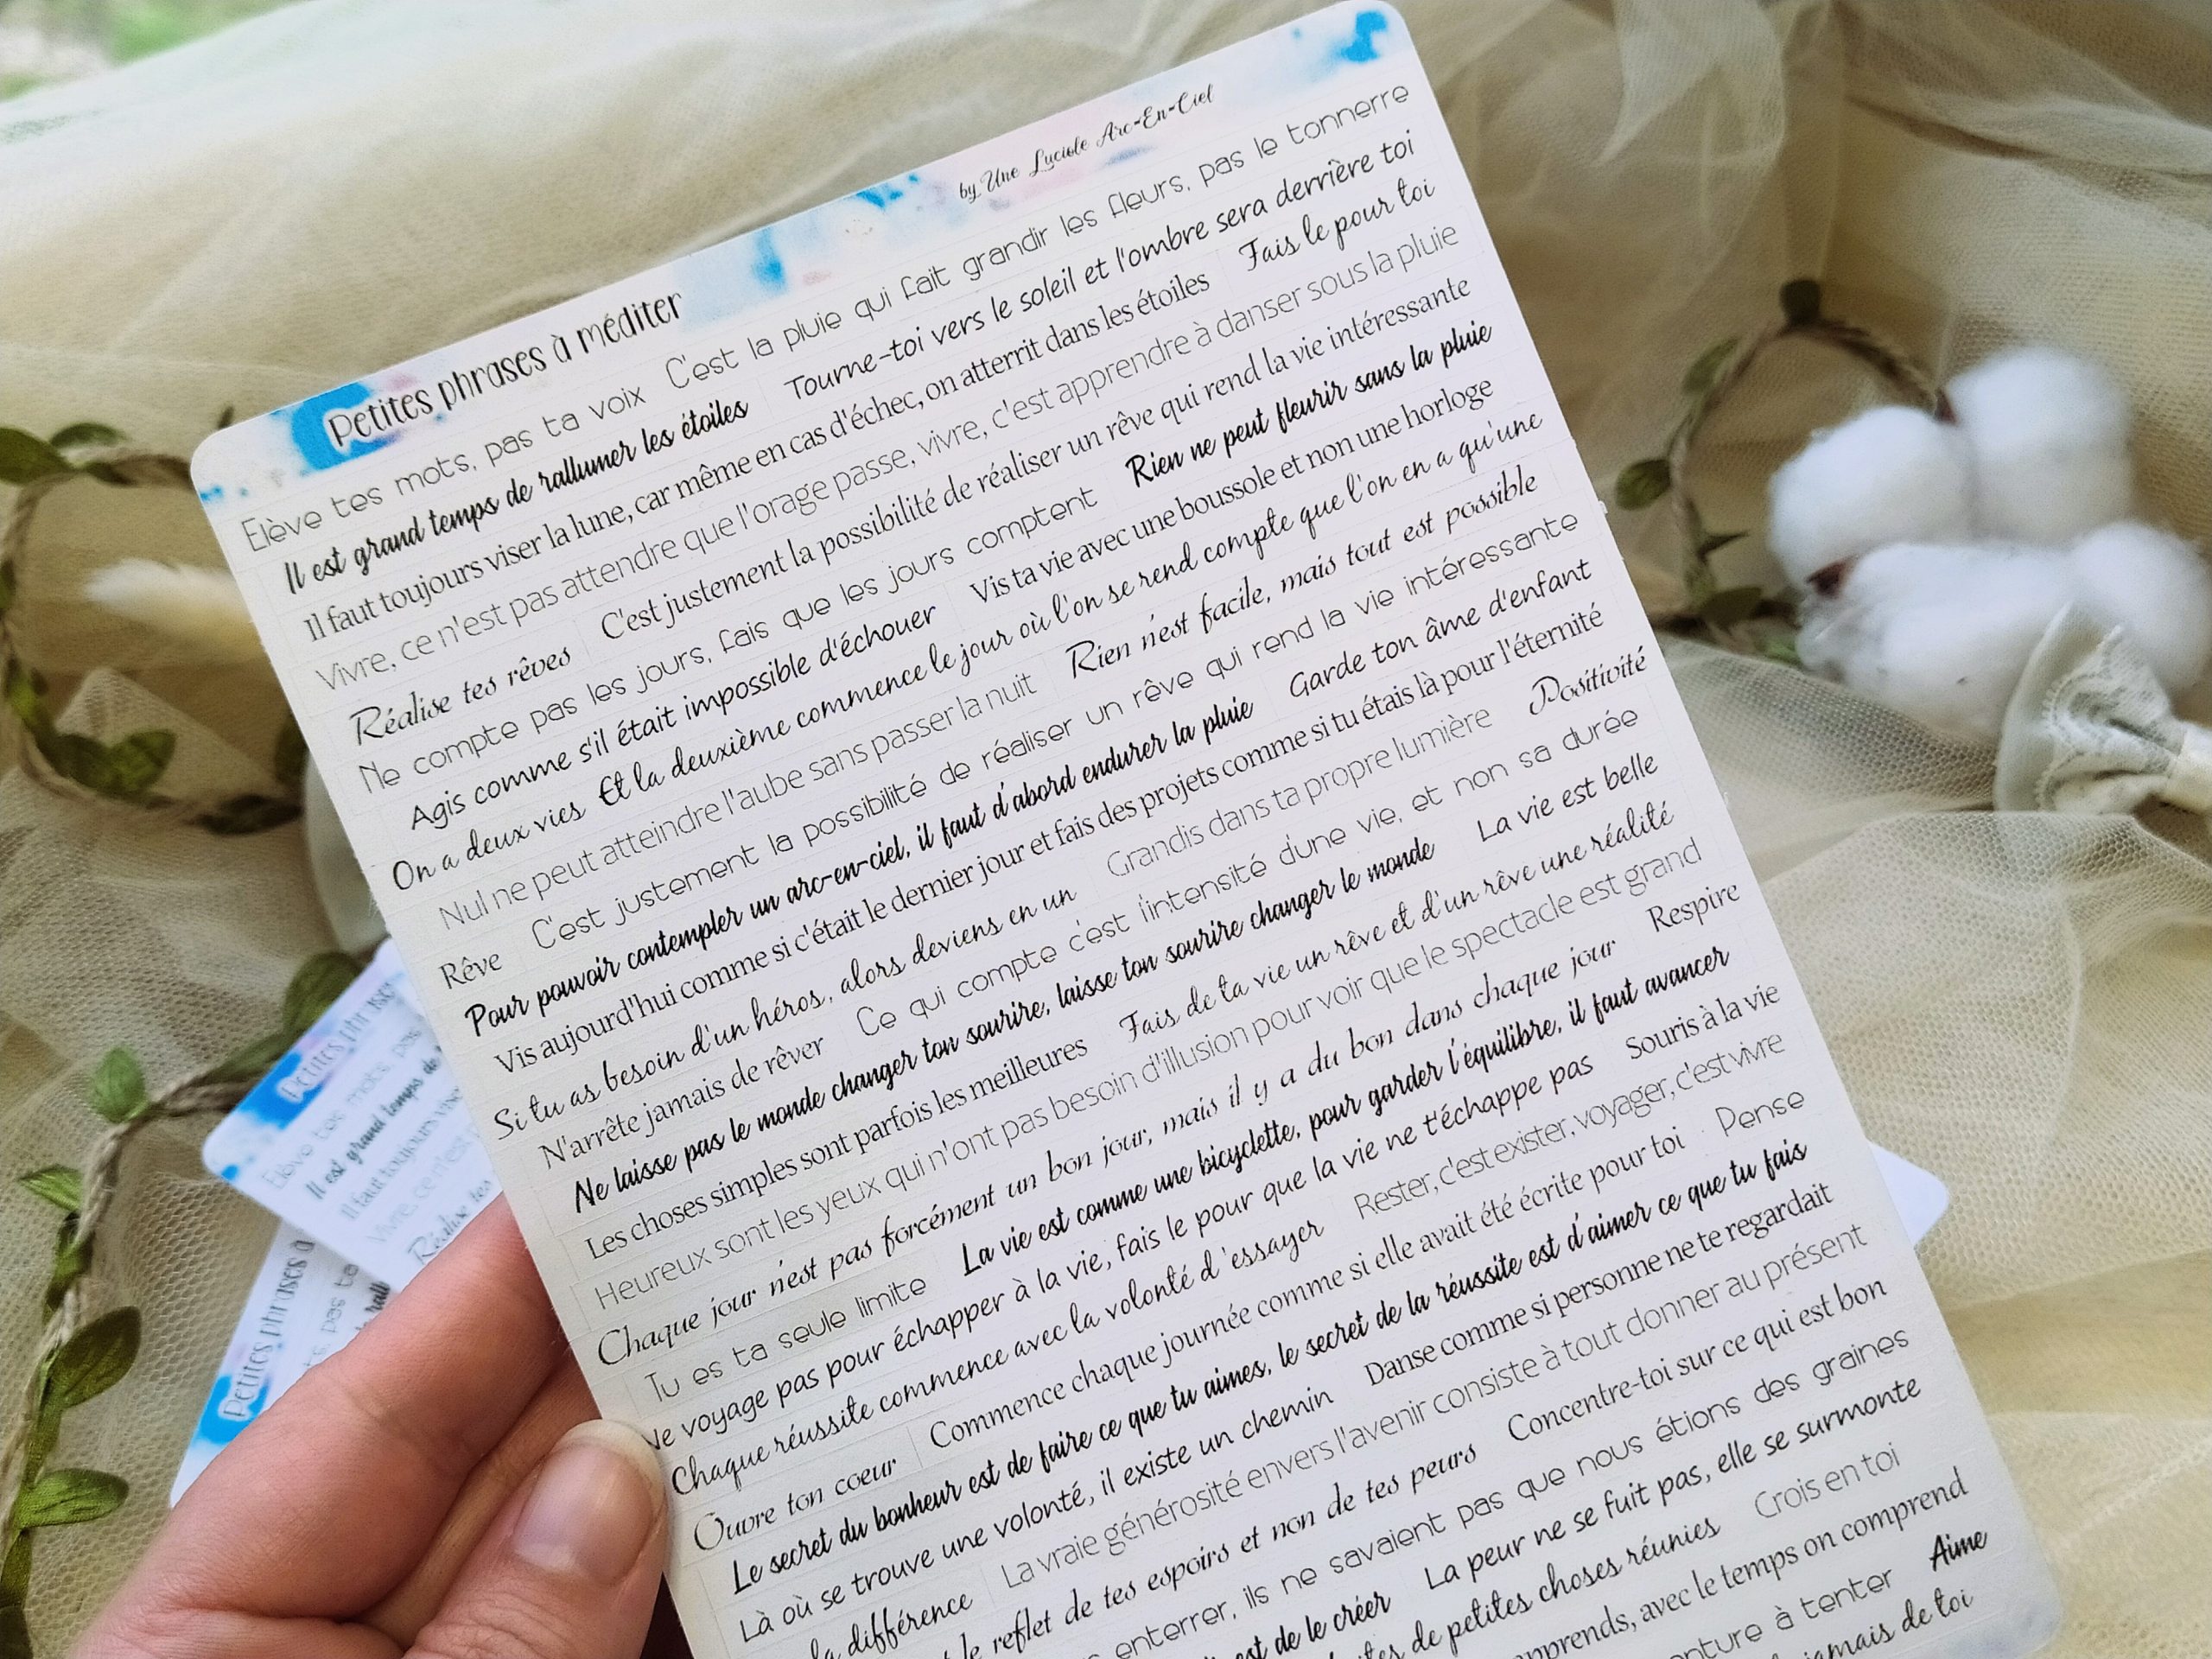 Petites phrases à méditer
by Une Luciole Arc-En-Ciel
Elève tes mots, pas ta voix C'est la pluie qui fait grandir les fleurs, pas le tonnerre
Il est grand temps de rallumer les étoiles Tourne-toi vers le soleil et l'ombre sera derrière toi
Il faut toujours viser la lune, car même en cas d'échec, on atterrit dans les étoiles Fais le pour toi
Vivre, ce n'est pas attendre que l'orage passe, vivre, c'est apprendre à danser sous la pluie
Réalise tes rêves C'est justement la possibilité de réaliser un rêve qui rend la vie intéressante
Ne compte pas les jours, fais que les jours comptent Rien ne peut fleurir sans la pluie
Agis comme s'il était impossible d'échouer Vis ta vie avec une boussole et non une horloge
On a deux vies Et la deuxième commence le jour où l'on se rend compte que l'on en a qu'une
Nul ne peut atteindre l'aube sans passer la nuit Rien n'est facile, mais tout est possible
Rêve C'est justement la possibilité de réaliser un rêve qui rend la vie intéressante
Pour pouvoir contempler un arc-en-ciel, il faut d'abord endurer la pluie Garde ton âme d'enfant
Vis aujourd'hui comme si c'était le dernier jour et fais des projets comme si tu étais là pour l'éternité
Si tu as besoin d'un héros, alors deviens en un Grandis dans ta propre lumière Positivité
N'arrête jamais de rêver Ce qui compte c'est l'intensité d'une vie, et non sa durée
Ne laisse pas le monde changer ton sourire, laisse ton sourire changer le monde La vie est belle
Les choses simples sont parfois les meilleures Fais de ta vie un rêve et d'un rêve une réalité
Heureux sont les yeux qui n'ont pas besoin d'illusion pour voir que le spectacle est grand
Chaque jour n'est pas forcément un bon jour, mais il y a du bon dans chaque jour Respire
Tu es ta seule limite La vie est comme une bicyclette, pour garder l'équilibre, il faut avancer
Ne voyage pas pour échapper à la vie, fais le pour que la vie ne t'échappe pas Souris à la vie
Chaque réussite commence avec la volonté d'essayer Rester, c'est exister, voyager, c'est vivre
Ouvre ton coeur Commence chaque journée comme si elle avait été écrite pour toi Pense
Le secret du bonheur est de faire ce que tu aimes, le secret de la réussite est d'aimer ce que tu fais
Là où se trouve une volonté, il existe un chemin Danse comme si personne ne te regardait
la différence La vraie générosité envers l'avenir consiste à tout donner au présent
le reflet de tes espoirs et non de tes peurs Concentre-toi sur ce qui est bon
enterrer, ils ne savaient pas que nous étions des graines
est de le créer La peur ne se fuit pas, elle se surmonte
de petites choses réunies Crois en toi
apprends, avec le temps on comprend
à tenter Aime
jamais de toi
Petites phrases
Elève tes mots, pas
Il est grand temps de
Il faut toujours vise
Vivre, ce n'est
Réalise tes
Petites phrases à